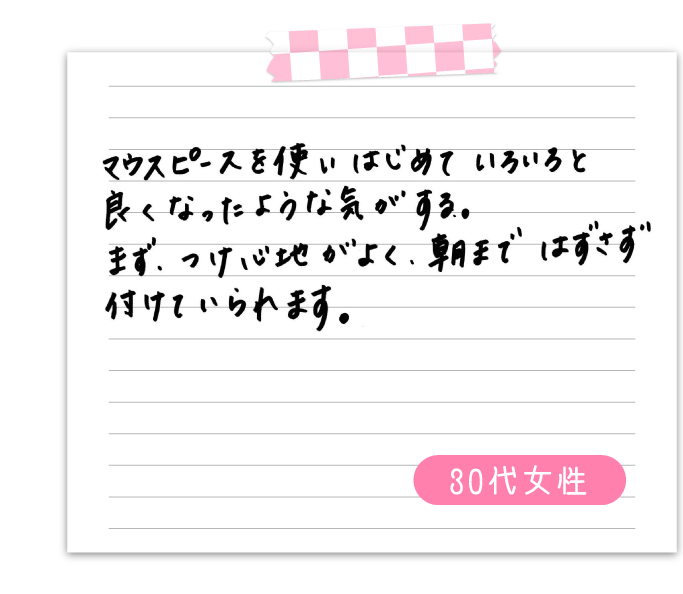 マウスピースを使いはじめていろいろと
良くなったような気がする。
まず、つけ心地がよく、朝まではずさず
付けていられます。
30代女性